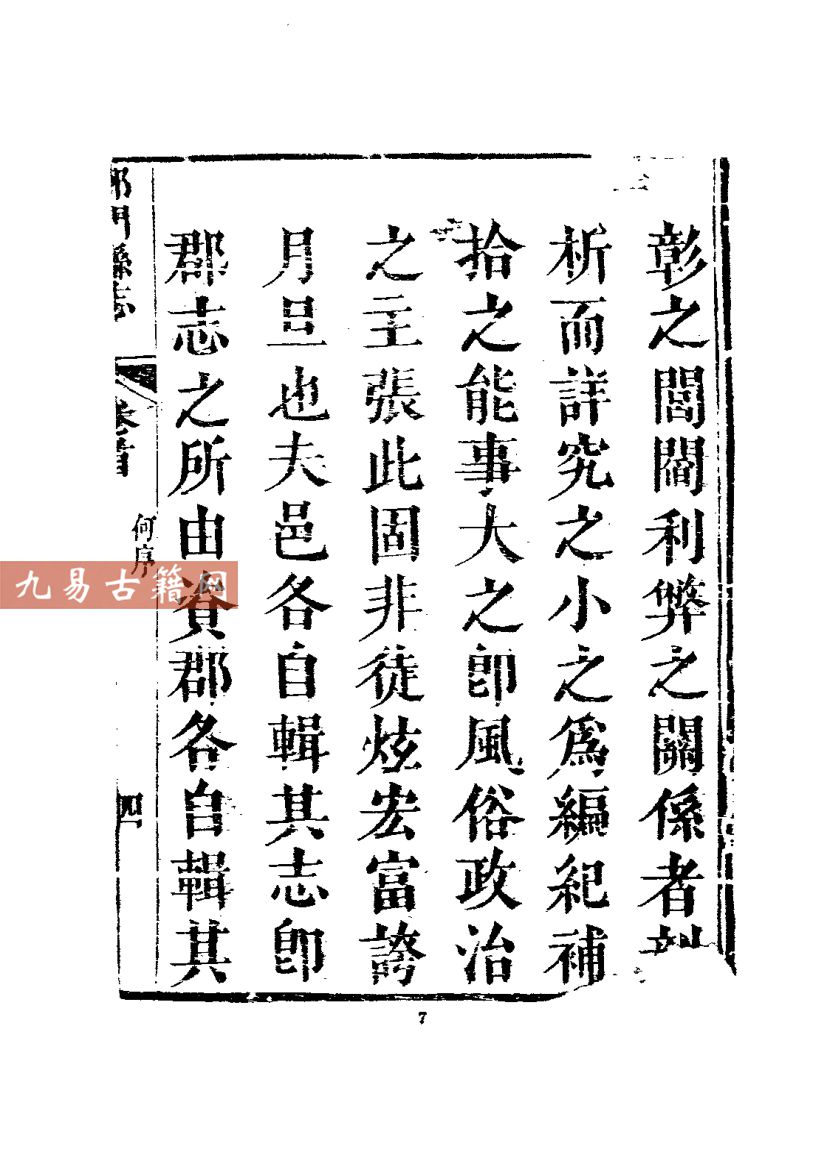 彰之閭閻利弊之關係者
析而詳究之小之爲編紀補
拾之能事大之卽風俗政治
之主張此固非徒炫宏富誇
月旦也夫邑各自輯其志卽
郡志之所由資郡各自輯其
縣志
卷首
何序
四
九易古籍网
7